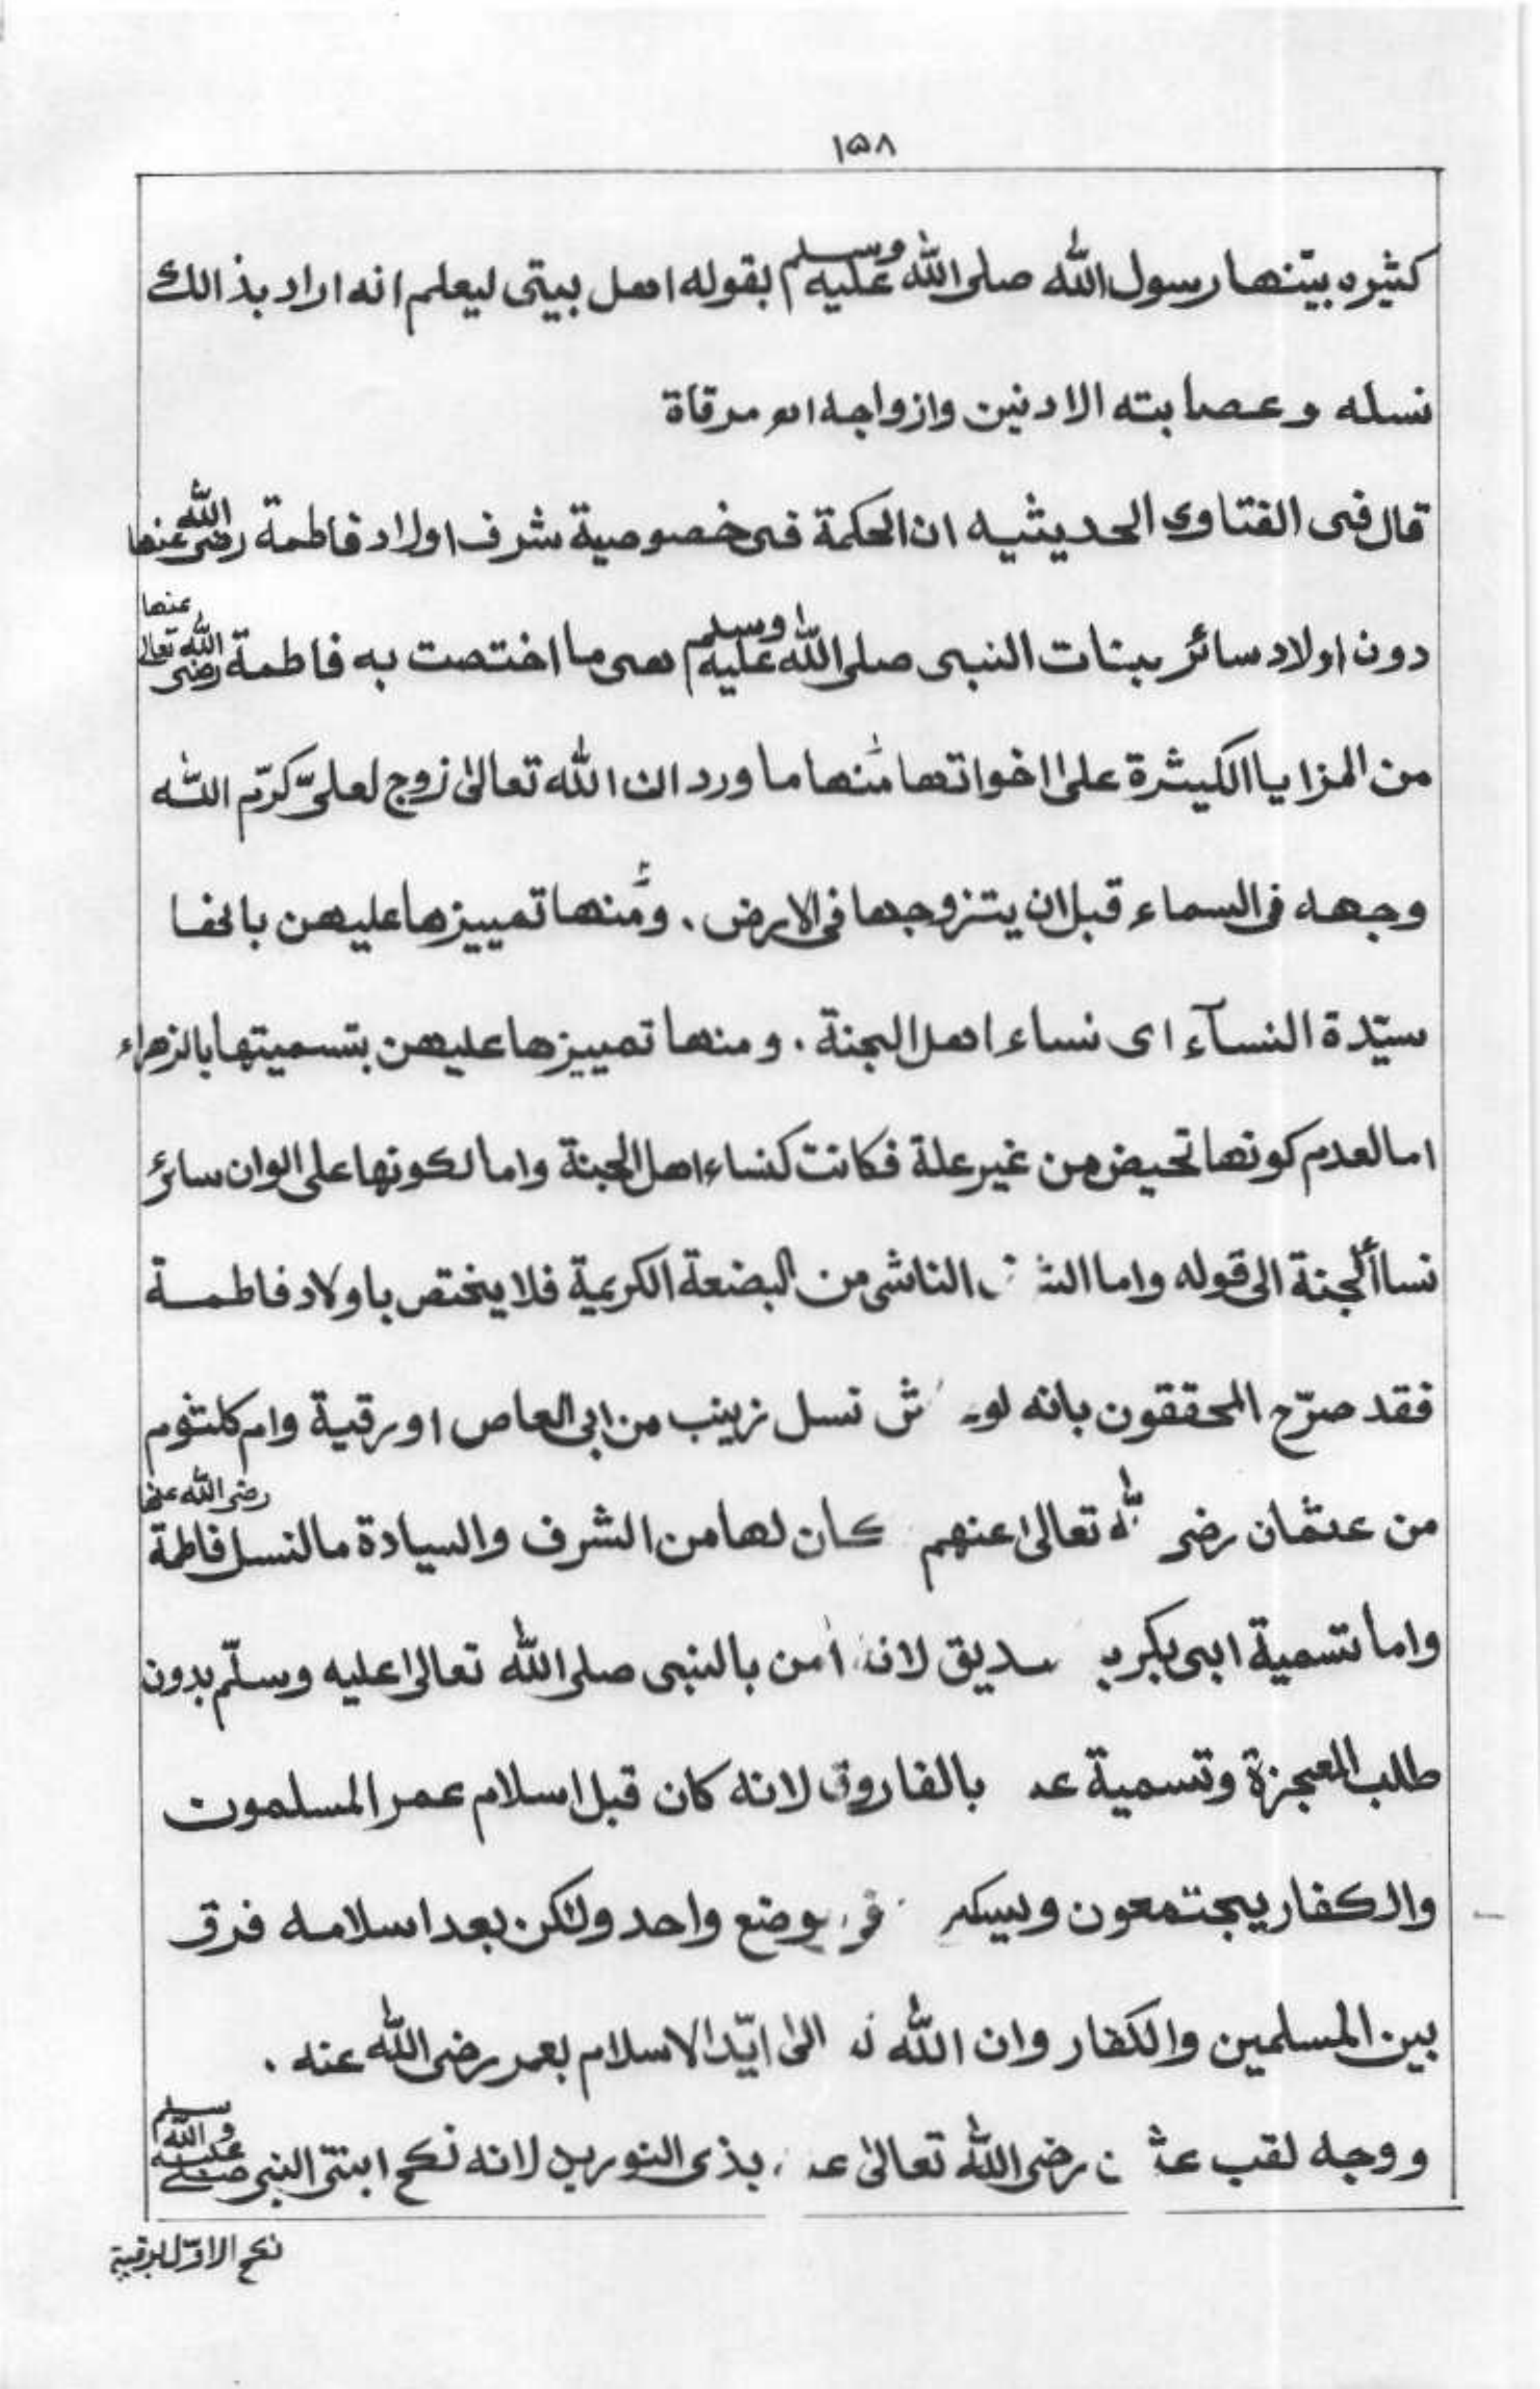 ١٥٨
كثيره بيّنها رسول الله صلى الله عليه وسلم بقوله اهل بيتى ليعلم انه اراد بذالك
نسله وعصابته الادنين وازواجه اھ مرقاة
قال فى الفتاوى الحديثيه ان الحكمة فى خصوصية شرف اولاد فاطمة رضى الله عنها
دون اولاد سائر بنات النبى صلى الله عليه وسلم هى ما اختصت به فاطمة رضى الله تعالى عنها
من المزايا الكيثرة على اخواتها منها ما ورد ان الله تعالىٰ زوج لعلىّ كرّم الله
وجهه فى السماء قبل ان يتزوجها فى الارض . ومنها تمييزها عليهن بانها
سيّدة النسآء اى نساء اهل الجنة . ومنها تمييزها عليهن بتسميتها بالزهراء
اما لعدم كونها تحيض من غير علة فكانت كنساء اهل الجنة واما لكونها على الوان سائر
نساألجنة الى قوله واما الناشى من البضعة الكريمة فلا يختص باولاد فاطمة
فقد صرّح المحققون بانه نسل زينب من ابى العاص او رقية وام كلثوم
من عثمان رضى الله تعالىٰ عنهم كان لها من الشرف والسيادة ما لنسل فاطمة رضى الله عنها
واما تسمية ابى بكر لانه أمن بالنبى صلى الله تعالىٰ عليه وسلّم بدون
طلب المعجزة وتسمية بالفاروق لانه كان قبل اسلام عمر المسلمون
والكفار يجتمعون فى موضع واحد ولكن بعد اسلامه فرق
بين المسلمين والكفار وان الله ايّد الاسلام بعمر رضى الله عنه .
ووجه لقب رضى الله تعالىٰ بذى النورين لانه نكح ابنتى النبى صلى الله عليه وسلم
نكح الاوّل برقية